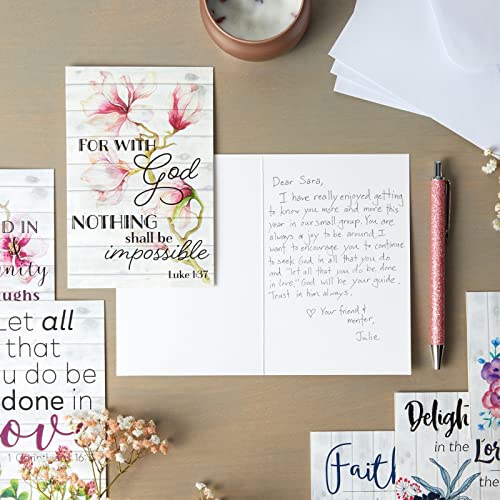 FOR WITH
God
NOTHING
shall be
impossible
Luke 1:37
Dear Sara,
I have really enjoyed getting
to know you more and more this
year in our small group. You are
always a joy to be around. I
want to encourage you to continue
to seek God in all that you do
and "let all that you do be done
in love." God will be your guide.
Trust in him always.
♡ Your friend &
mentor,
Julie
D IN
nity
ughs
Let all
that
u do be
done in
Love
1 Corinthians 16:
Faith
Delight
in the
Lor